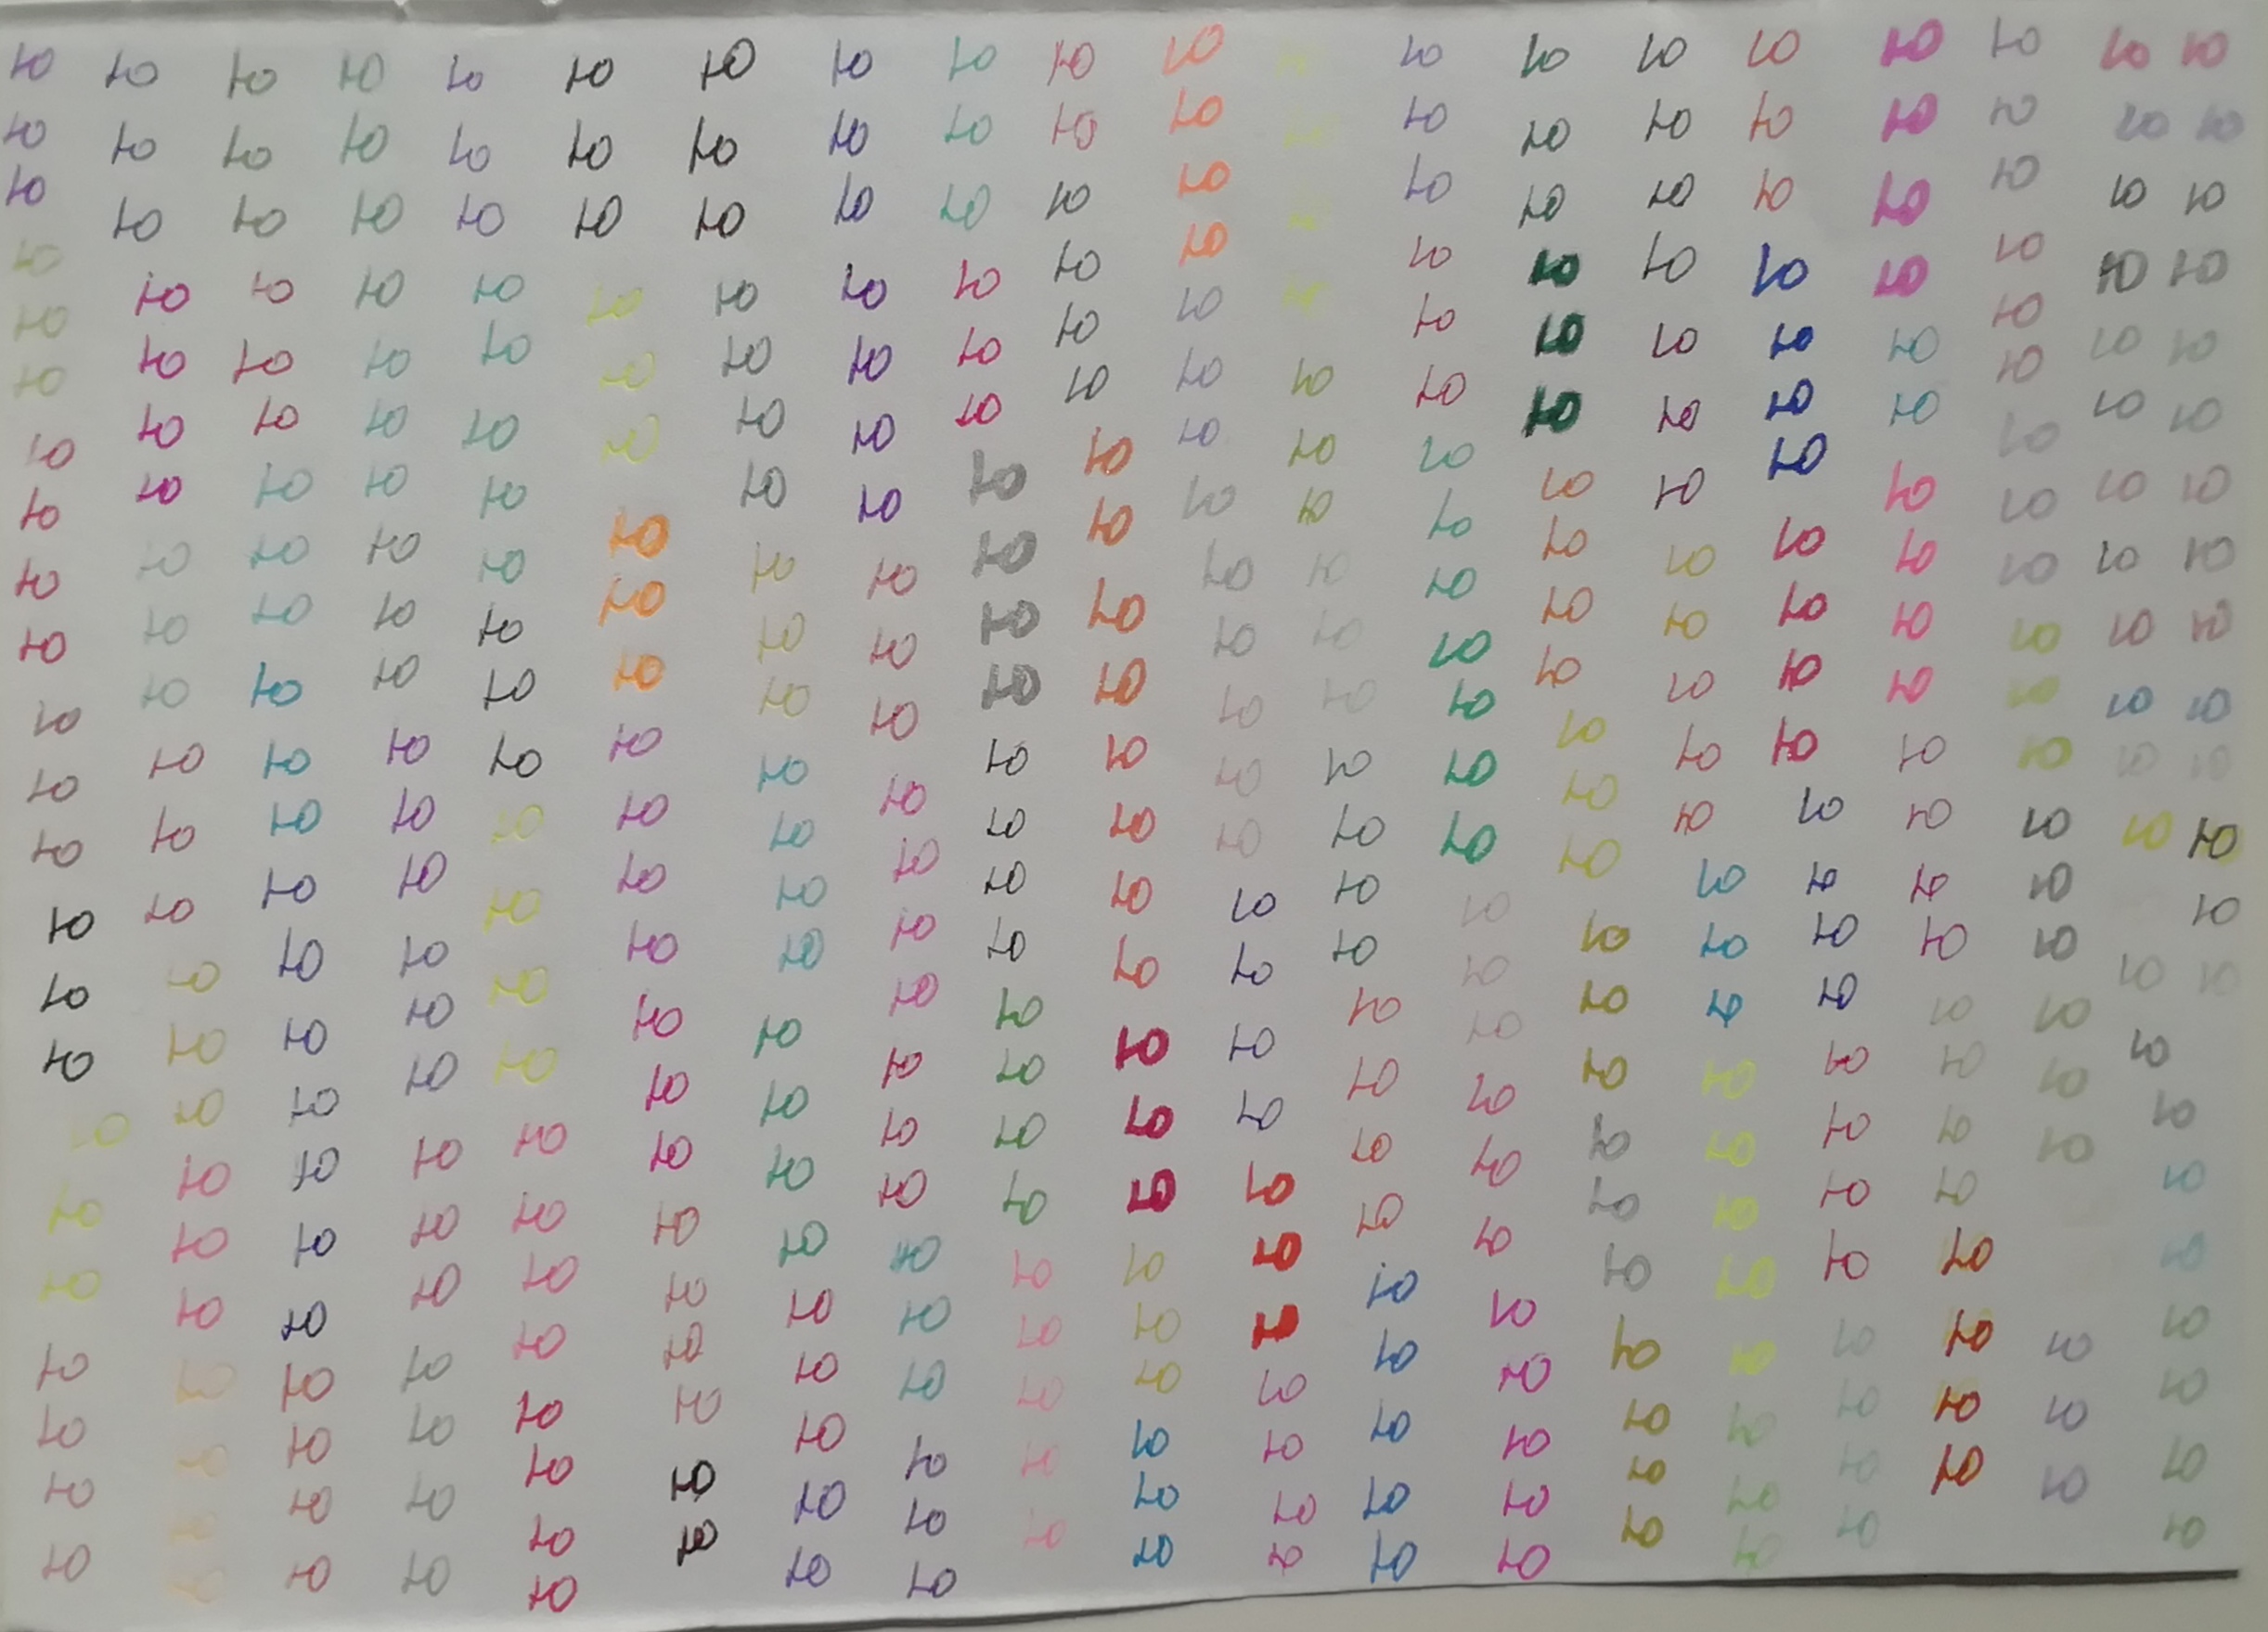 ю ю ю ю ю ю ю ю ю ю ю ю ю ю ю ю ю ю ю ю
ю ю ю ю ю ю ю ю ю ю ю ю ю ю ю ю ю ю ю ю
ю ю ю ю ю ю ю ю ю ю ю ю ю ю ю ю ю ю ю ю
ю ю ю ю ю ю ю ю ю ю ю ю ю ю ю ю ю ю ю ю
ю ю ю ю ю ю ю ю ю ю ю ю ю ю ю ю ю ю ю ю
ю ю ю ю ю ю ю ю ю ю ю ю ю ю ю ю ю ю ю ю
ю ю ю ю ю ю ю ю ю ю ю ю ю ю ю ю ю ю ю ю
ю ю ю ю ю ю ю ю ю ю ю ю ю ю ю ю ю ю ю ю
ю ю ю ю ю ю ю ю ю ю ю ю ю ю ю ю ю ю ю ю
ю ю ю ю ю ю ю ю ю ю ю ю ю ю ю ю ю ю ю ю
ю ю ю ю ю ю ю ю ю ю ю ю ю ю ю ю ю ю ю ю
ю ю ю ю ю ю ю ю ю ю ю ю ю ю ю ю ю ю ю ю
ю ю ю ю ю ю ю ю ю ю ю ю ю ю ю ю ю ю ю ю
ю ю ю ю ю ю ю ю ю ю ю ю ю ю ю ю ю ю ю ю
ю ю ю ю ю ю ю ю ю ю ю ю ю ю ю ю ю ю ю ю
ю ю ю ю ю ю ю ю ю ю ю ю ю ю ю ю ю ю ю
ю ю ю ю ю ю ю ю ю ю ю ю ю ю ю ю ю ю ю
ю ю ю ю ю ю ю ю ю ю ю ю ю ю ю ю ю ю ю
ю ю ю ю ю ю ю ю ю ю ю ю ю ю ю ю ю ю ю
ю ю ю ю ю ю ю ю ю ю ю ю ю ю ю ю ю ю ю
ю ю ю ю ю ю ю ю ю ю ю ю ю ю ю ю ю ю
ю ю ю ю ю ю ю ю ю ю ю ю ю ю ю ю ю
ю ю ю ю ю ю ю ю ю ю ю ю